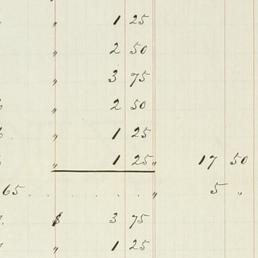 " 1 25
" 2 50
" 3 75
" 2 50
" 1 25
" 1 25 " 17 50
65 " 5 "
$ 3 75
" 1 25